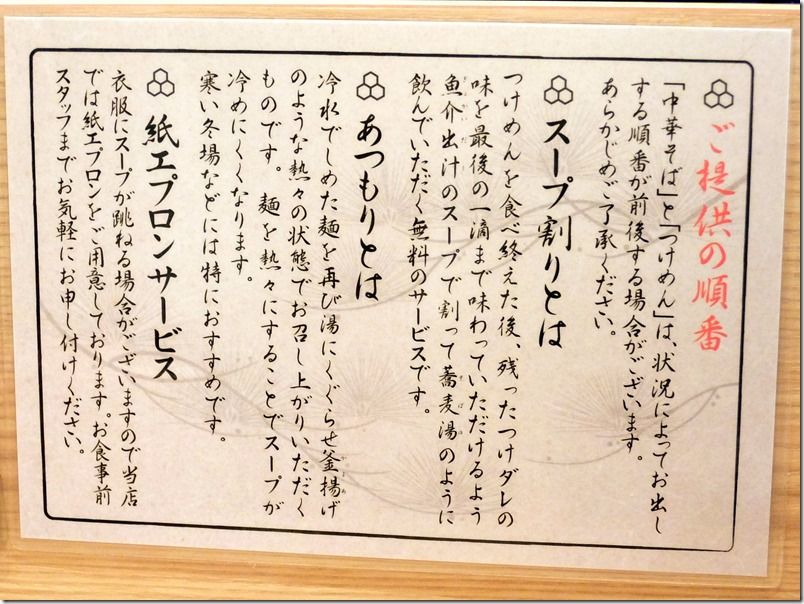 ご提供の順番
「中華そば」と「つけめん」は、状況によってお出し
する順番が前後する場合がございます。
あらかじめご了承ください。
スープ割りとは
つけめんを食べ終えた後、残ったつけダレの
味を最後の一滴まで味わっていただけるよう
魚介出汁のスープで割って蕎麦湯のように
飲んでいただく無料のサービスです。
あつもりとは
冷水でしめた麺を再び湯にくぐらせ釜揚げ
のような熱々の状態でお召し上がりいただく
ものです。 麺を熱々にすることでスープが
冷めにくくなります。
寒い冬場などには特におすすめです。
紙エプロンサービス
衣服にスープが跳ねる場合がございますので当店
では紙エプロンをご用意しております。お食事前
スタッフまでお気軽にお申し付けください。